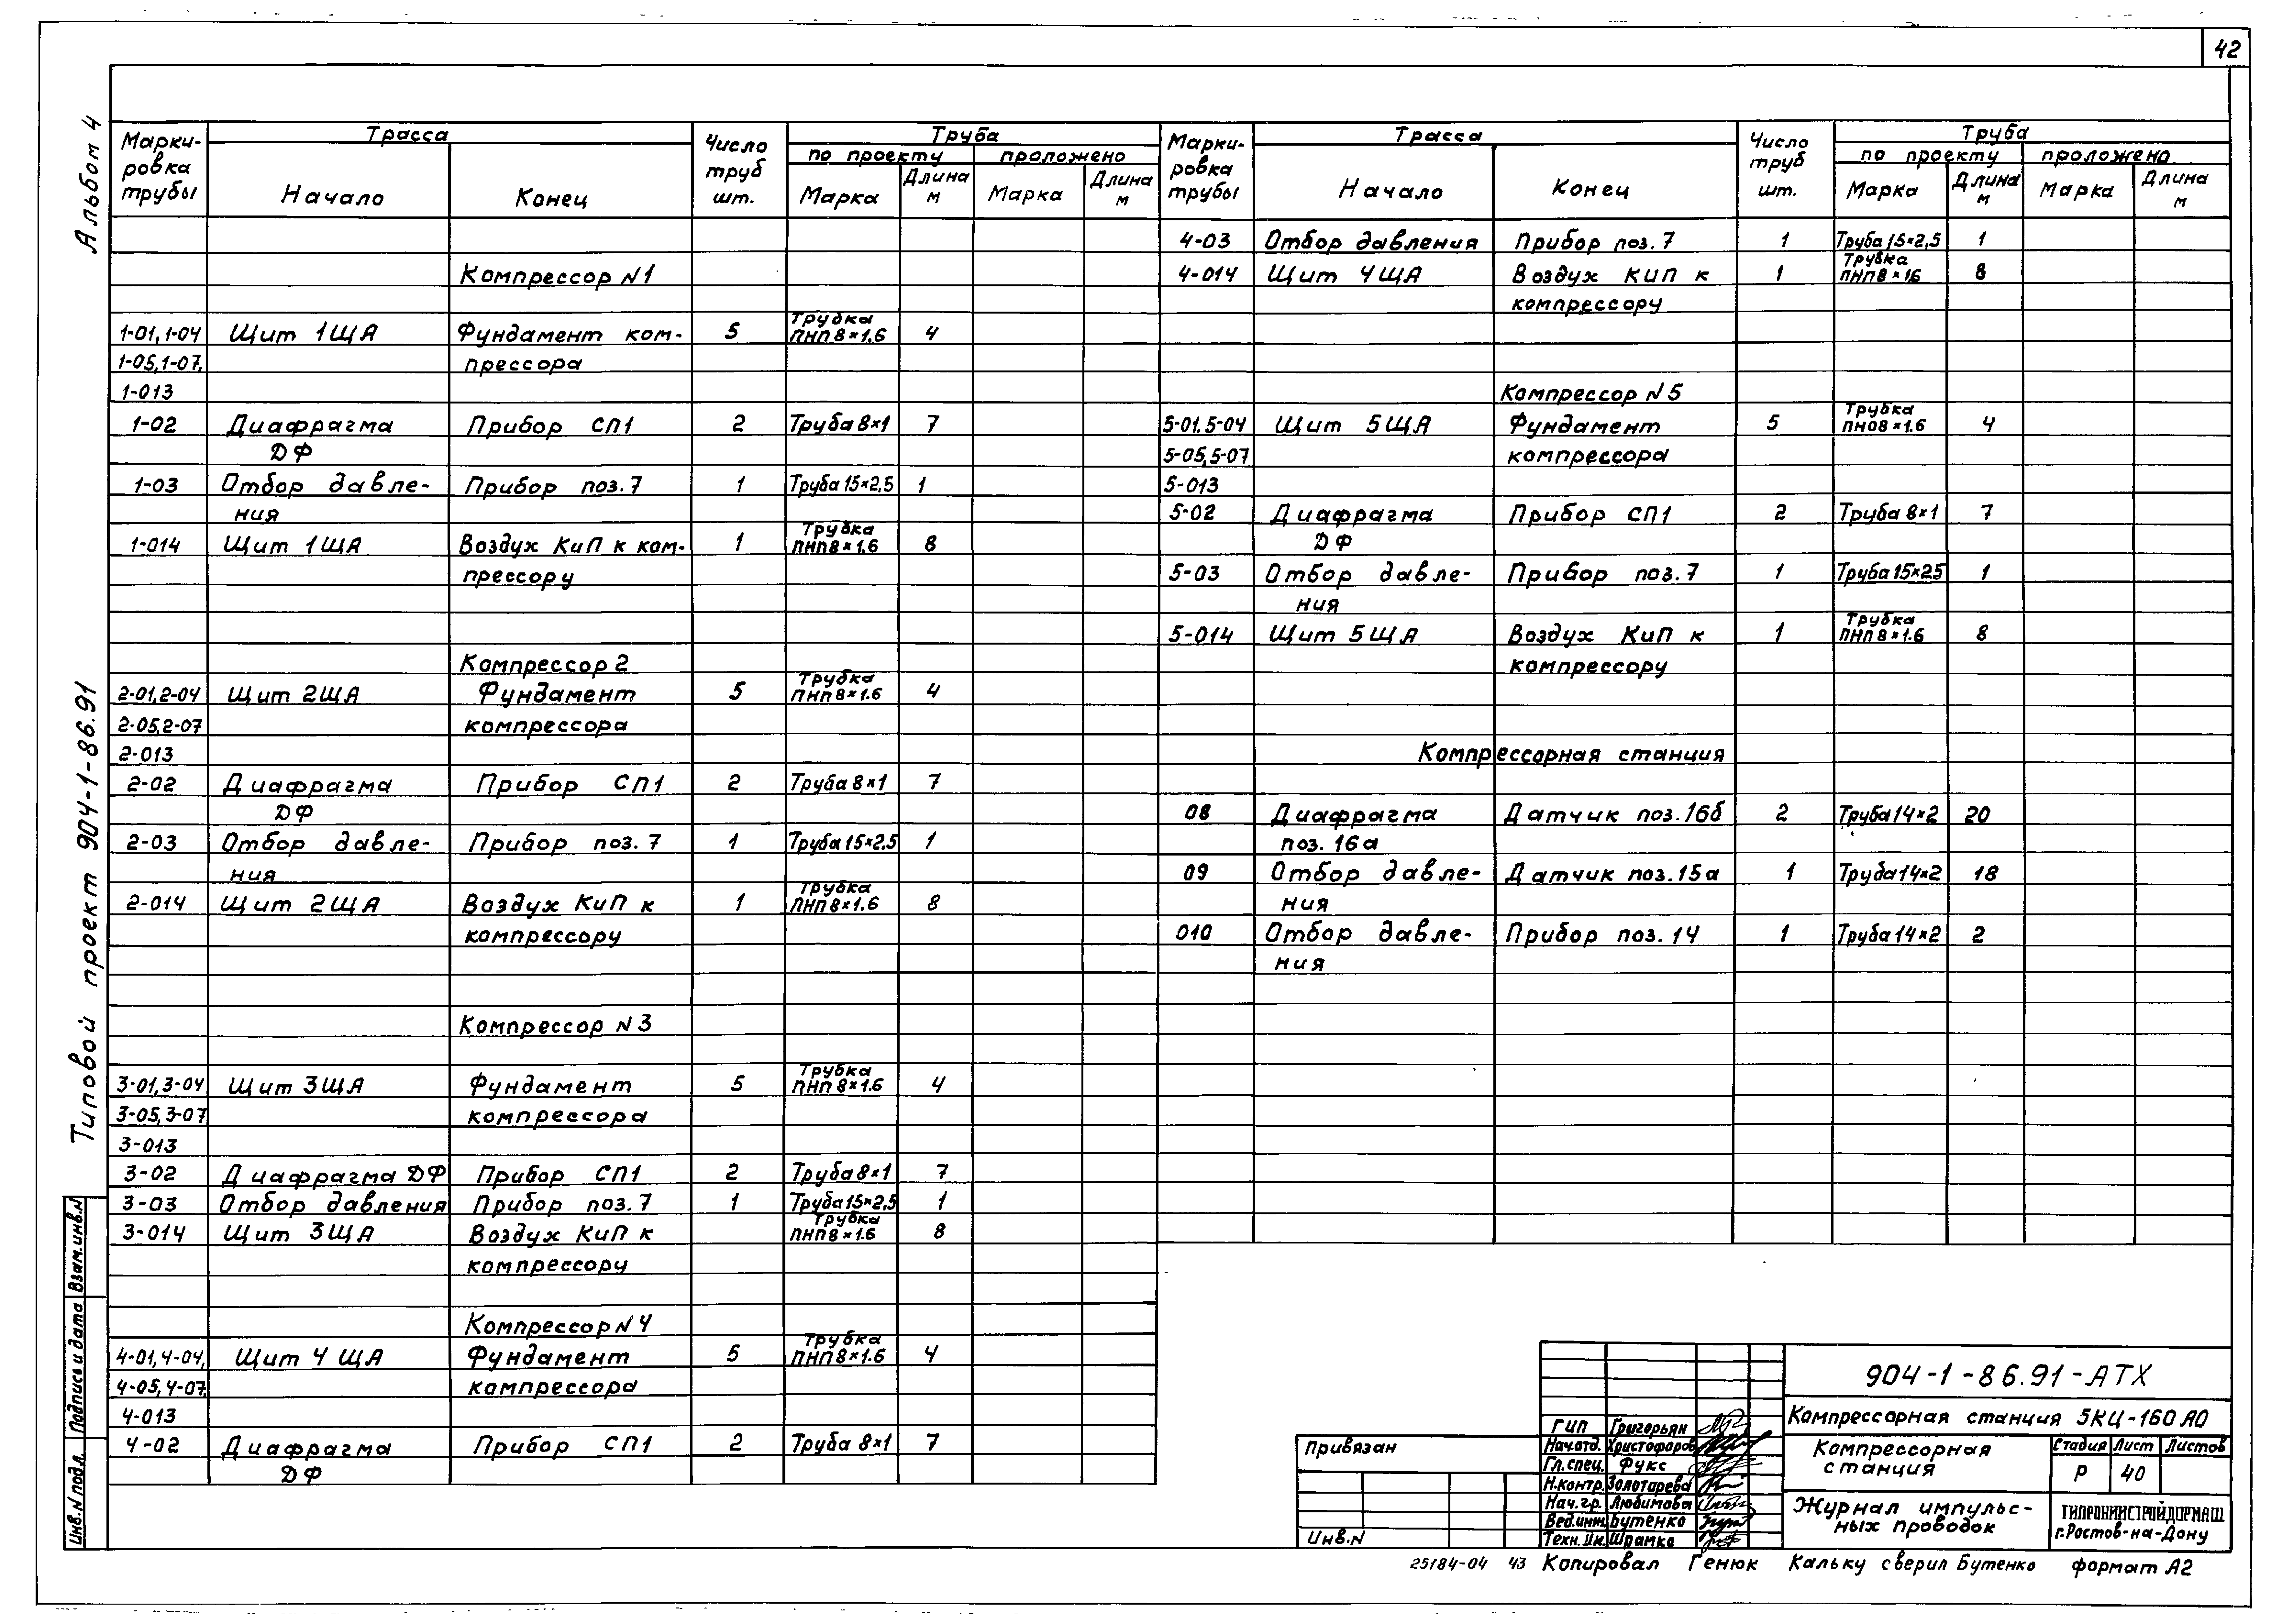 42
Альбом 4
Типовой проект 904-1-86.91
Взам.инв.N
Подпись и дата
Инв.N подл.
Марки-
ровка
трубы
Трасса
Начало
Конец
Число
труб
шт.
Труба
по проекту
проложено
Марка
Длина
м
Марка
Длина
м
Компрессор N1
1-01, 1-04 Щит 1ЩА Фундамент ком- 5 Трубка ПНП 8×1.6 4
1-05, 1-07, прессора
1-013
1-02 Диафрагма Прибор СП1 2 Труба 8×1 7
ДФ
1-03 Отбор давле- Прибор поз.7 1 Труба 15×2,5 1
ния
1-014 Щит 1ЩА Воздух КиП к ком- 1 Трубка ПНП 8×1.6 8
прессору
Компрессор 2
2-01, 2-04 Щит 2ЩА Фундамент 5 Трубка ПНП 8×1.6 4
2-05, 2-07 компрессора
2-013
2-02 Диафрагма Прибор СП1 2 Труба 8×1 7
ДФ
2-03 Отбор давле- Прибор поз.7 1 Труба 15×2,5 1
ния
2-014 Щит 2ЩА Воздух КиП к 1 Трубка ПНП 8×1.6 8
компрессору
Компрессор N3
3-01, 3-04 Щит 3ЩА Фундамент 5 Трубка ПНП 8×1.6 4
3-05, 3-07 компрессора
3-013
3-02 Диафрагма ДФ Прибор СП1 2 Труба 8×1 7
3-03 Отбор давления Прибор поз.7 1 Труба 15×2,5 1
3-014 Щит 3ЩА Воздух КиП к Трубка ПНП 8×1.6 8
компрессору
Компрессор N4
4-01, 4-04, Щит 4ЩА Фундамент 5 Трубка ПНП 8×1.6 4
4-05, 4-07, компрессора
4-013
4-02 Диафрагма Прибор СП1 2 Труба 8×1 7
ДФ
Марки-
ровка
трубы
Трасса
Начало
Конец
Число
труб
шт.
Труба
по проекту
проложено
Марка
Длина
м
Марка
Длина
м
4-03 Отбор давления Прибор поз.7 1 Труба 15×2,5 1
4-014 Щит 4ЩА Воздух КИП к 1 Трубка ПНП 8×1.6 8
компрессору
Компрессор N5
5-01, 5-04 Щит 5ЩА Фундамент 5 Трубка ПНП 8×1.6 4
5-05, 5-07 компрессора
5-013
5-02 Диафрагма Прибор СП1 2 Труба 8×1 7
ДФ
5-03 Отбор давле- Прибор поз.7 1 Труба 15×25 1
ния
5-014 Щит 5ЩА Воздух КиП к 1 Трубка ПНП 8×1.6 8
компрессору
Компрессорная станция
08 Диафрагма Датчик поз.16б 2 Труба 14×2 20
поз. 16а
09 Отбор давле- Датчик поз.15а 1 Труба 14×2 18
ния
010 Отбор давле- Прибор поз.14 1 Труба 14×2 2
ния
Привязан
Инв.N
ГИП Григорьян
Нач.отд. Христофоров
Гл.спец. Фукс
Н.контр. Золотарева
Нач.гр. Любимова
Вед.инж. Бутенко
Техн. IIк. Шрамко
904-1-86.91-АТХ
Компрессорная станция 5КЦ-160А0
Компрессорная
станция
Стадия Лист Листов
Р 40
Журнал импульс-
ных проводок
ГИПРОНИИСТРОЙДОРМАШ
г.Ростов-на-Дону
25184-04 43 Копировал Генюк Кальку сверил Бутенко формат А2